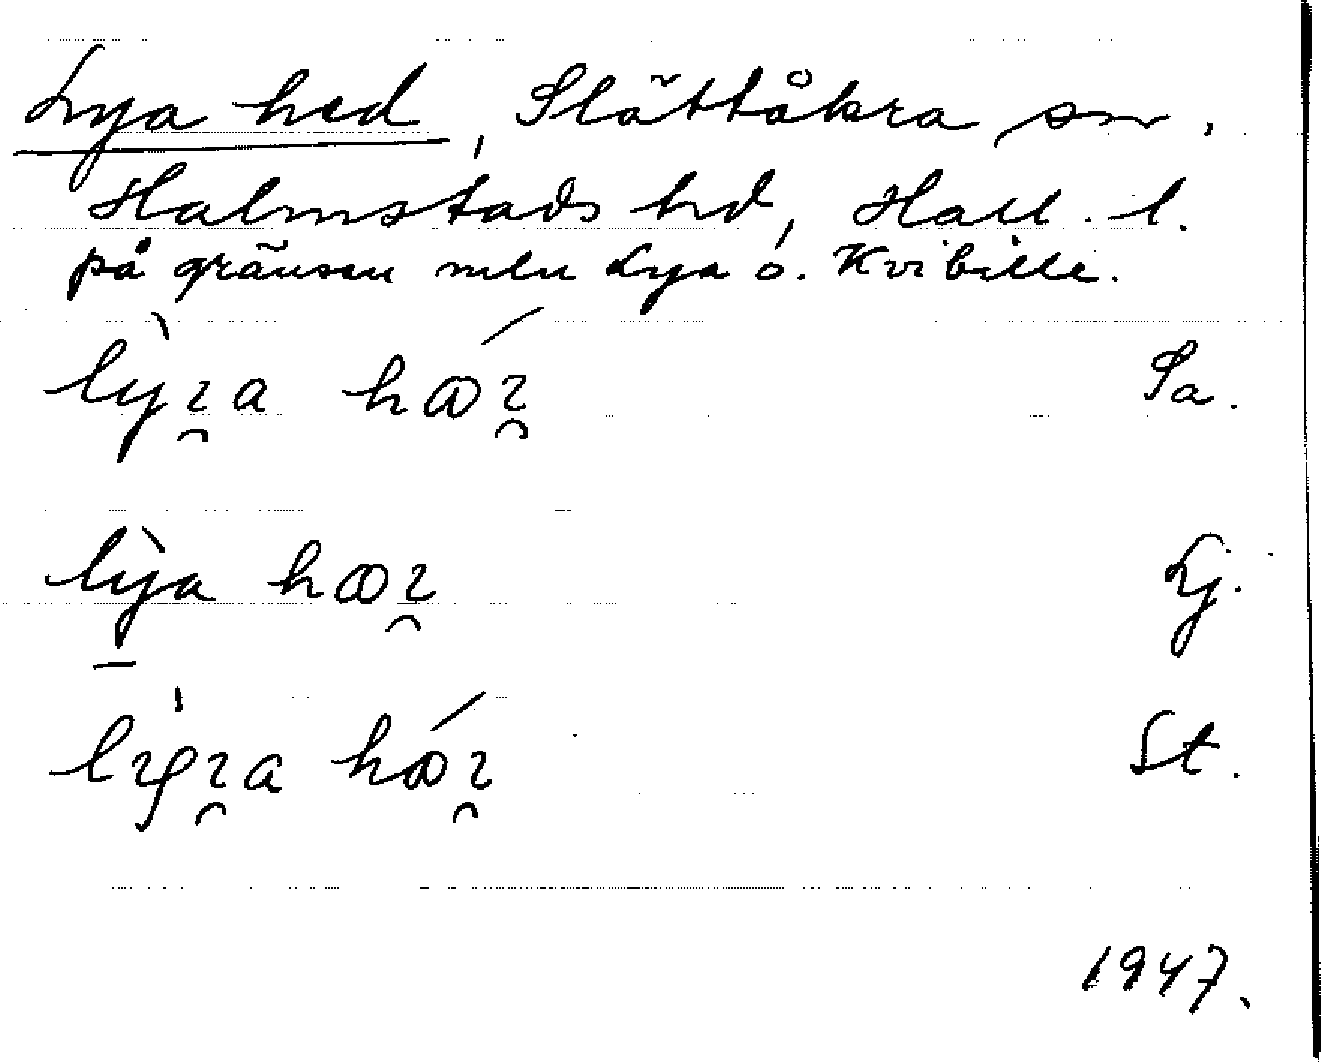 Lya hed, Slättåkra sn.
Halmstads hd, Hall. l.
på gränsen mln Lya o. Kvibille.
lỳɿ̯a hǿɿ̯ Sa.
lỳja hꝏɿ̯ Lj.
St.
1947.